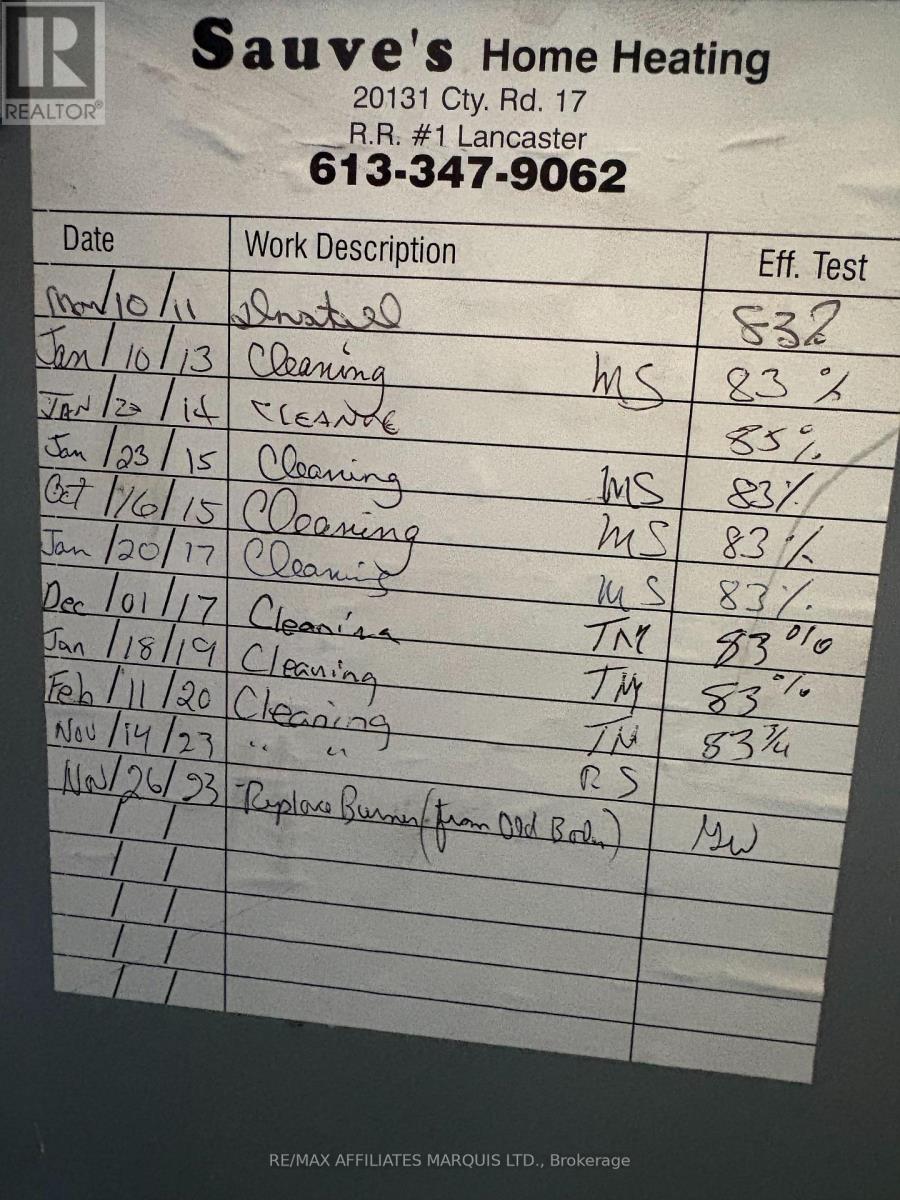 R
REALTOR®
Sauve's Home Heating
20131 Cty. Rd. 17
R.R. #1 Lancaster
613-347-9062
Date Work Description Eff. Test
10/11 Install 83%
Jan/10/13 Cleaning MS 83%
JAN/ /14 85%
Jan/23/15 Cleaning MS 83%
Oct/16/15 Cleaning MS 83%
Jan/20/17 Cleaning MS 83%
Dec/01/17 Cleaning TM 83%
Jan/18/19 Cleaning TM 83%
Feb/11/20 Cleaning TM 83 3/4
Nov/14/23 " " RS
Nov/26/23 Replace Burner (from Old Boiler) GW
RE/MAX AFFILIATES MARQUIS LTD., Brokerage